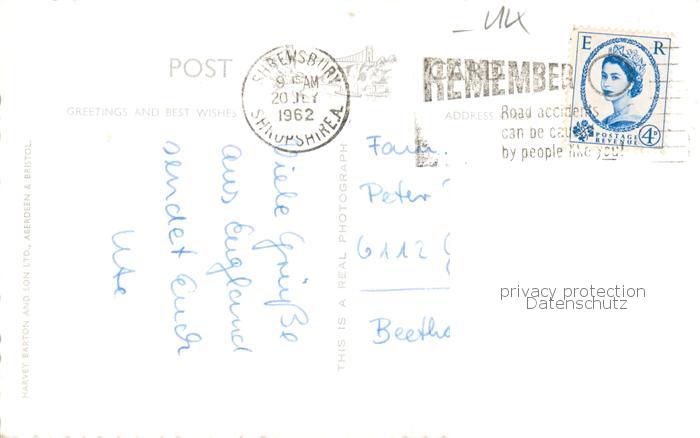 UK
POST
SHREWSBURY
9 15 AM
20 JLY
1962
SHROPSHIRE.A.
REMEMBER
Road accidents
can be
by people like you!
E R
POSTAGE
REVENUE
4D
GREETINGS AND BEST WISHES
ADDRESS
Viele Grüße
aus England
sendet Euch
Ute
THIS IS A REAL PHOTOGRAPH
HARVEY BARTON AND SON LTD., ABERDEEN & BRISTOL.
Fam.
Peter
6112
Beetho
privacy protection
Datenschutz